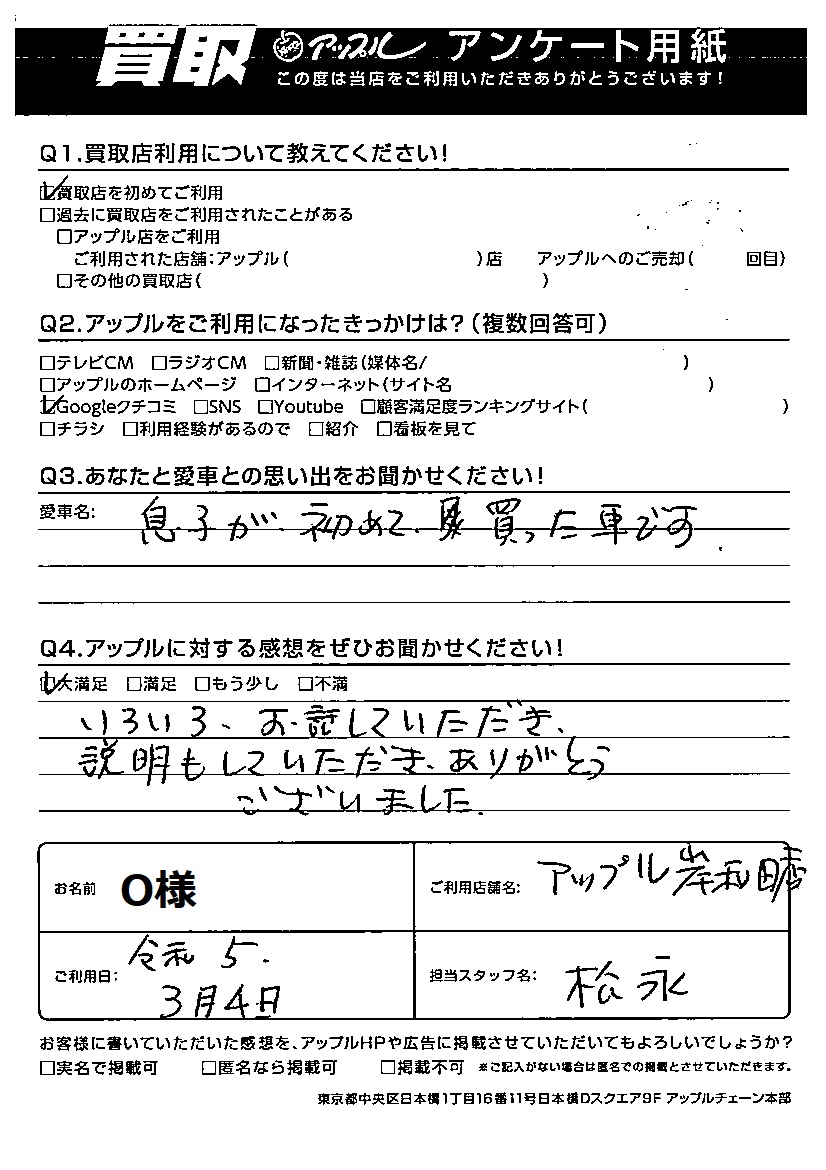 買取 アップル アンケート用紙
この度は当店をご利用いただきありがとうございます!
Q1.買取店利用について教えてください!
☑買取店を初めてご利用
□過去に買取店をご利用されたことがある
□アップル店をご利用
ご利用された店舗:アップル( )店 アップルへのご売却( 回目)
□その他の買取店( )
Q2.アップルをご利用になったきっかけは?(複数回答可)
□テレビCM □ラジオCM □新聞・雑誌(媒体名/ )
□アップルのホームページ □インターネット(サイト名 )
☑Googleクチコミ □SNS □Youtube □顧客満足度ランキングサイト( )
□チラシ □利用経験があるので □紹介 □看板を見て
Q3.あなたと愛車との思い出をお聞かせください!
愛車名: 息子が、初めて、買った車です.
Q4.アップルに対する感想をぜひお聞かせください!
☑大満足 □満足 □もう少し □不満
いろいろ、お話していただき、
説明もしていただき、ありがとう
ございました.
お名前 O様
ご利用店舗名: アップル岸和田店
ご利用日: 令和5.
3月4日
担当スタッフ名: 松永
お客様に書いていただいた感想を、アップルHPや広告に掲載させていただいてもよろしいでしょうか?
□実名で掲載可 □匿名なら掲載可 □掲載不可 ※ご記入がない場合は匿名での掲載とさせていただきます。
東京都中央区日本橋1丁目16番11号日本橋Dスクエア9F アップルチェーン本部